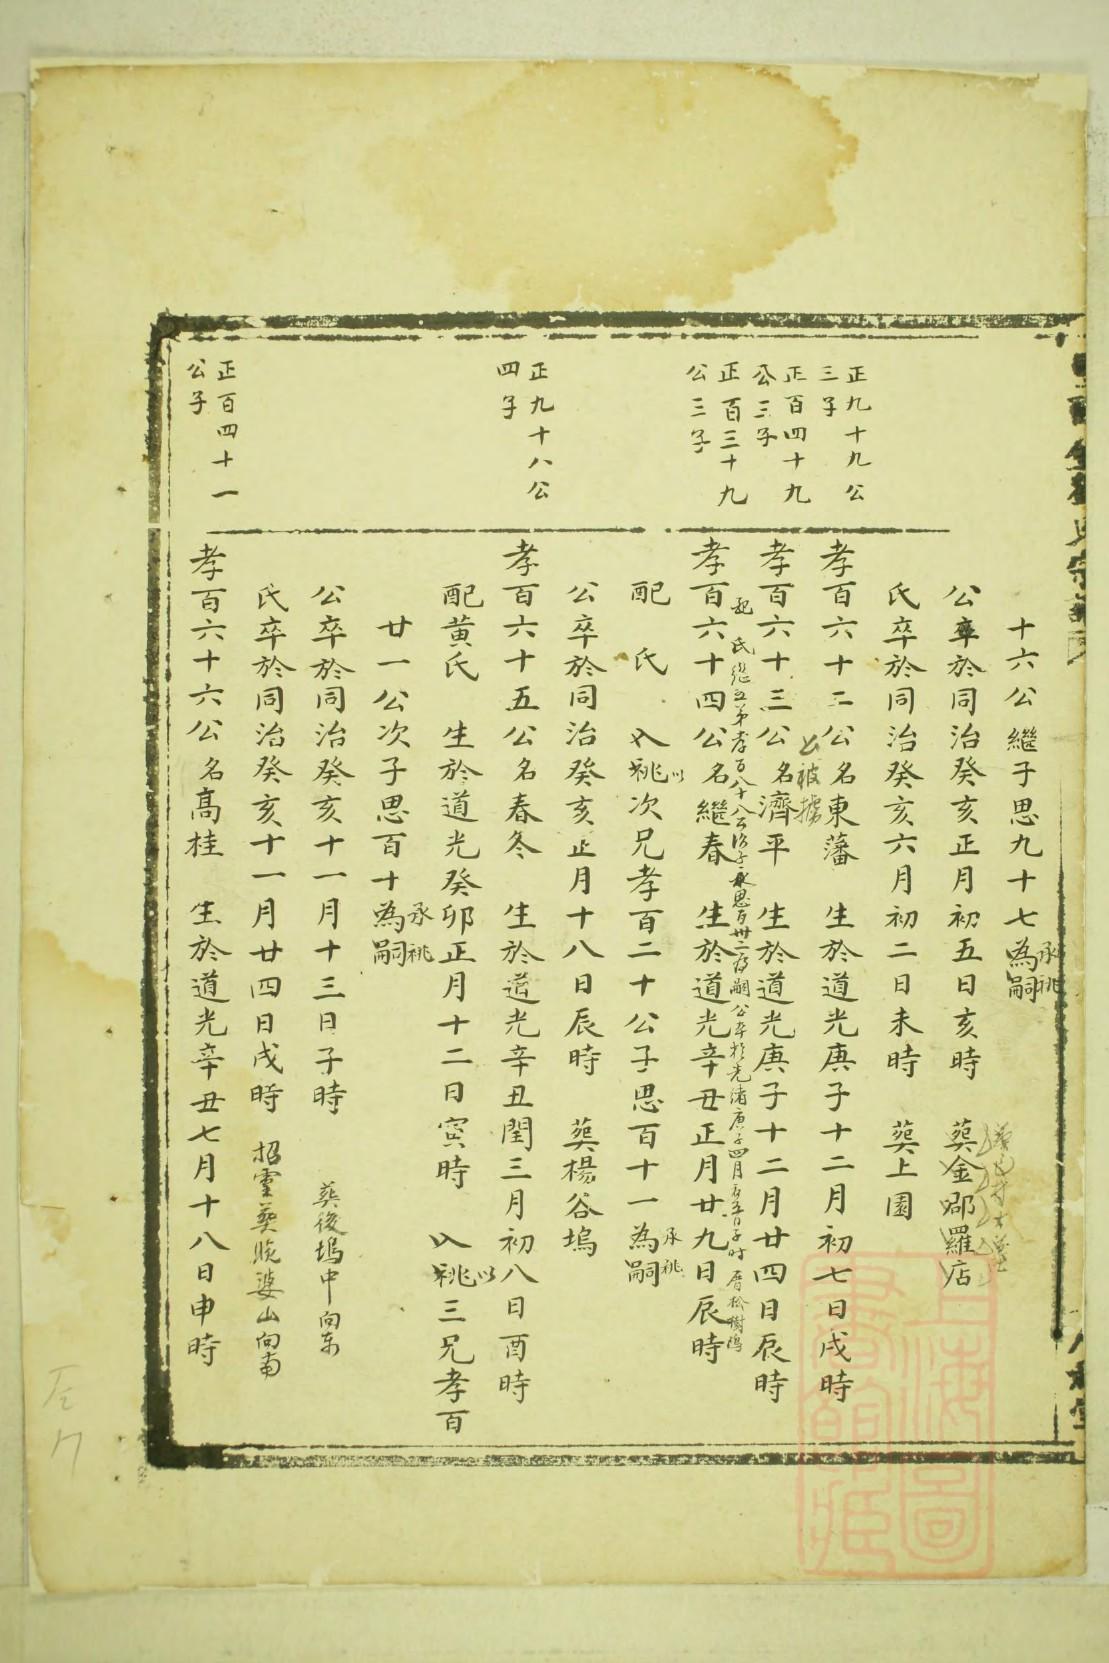 十六公繼子思九十七為嗣承祧
公卒於同治癸亥正月初五日亥時 葬金郡羅店
氏卒於同治癸亥六月初二日未時 葬上園
正九十九公三子
孝百六十二公名東藩 生於道光庚子十二月初七日戌時
公被擄
正百四十九公三子
孝百六十三公名濟平 生於道光庚子十二月廿四日辰時
配 氏繼五弟孝百八十八公次子承思百卅二為嗣 公卒於光緒庚子四月 五日子時 厝松樹塢
正百三十九公三子
孝百六十四公名繼春 生於道光辛丑正月廿九日辰時
配 氏 入祧以次兄孝百二十公子思百十一為嗣承祧
公卒於同治癸亥正月十八日辰時 葬楊谷塢
正九十八公四子
孝百六十五公名春冬 生於道光辛丑閏三月初八日酉時
配黃氏 生於道光癸卯正月十二日寅時 入祧以三兄孝百
廿一公次子思百十為嗣承祧
公卒於同治癸亥十一月十三日子時 葬後塢中向東
氏卒於同治癸亥十一月廿四日戌時 招靈葬 婆山向南
正百四十一公子
孝百六十六公名高桂 生於道光辛丑七月十八日申時
上海圖書館藏